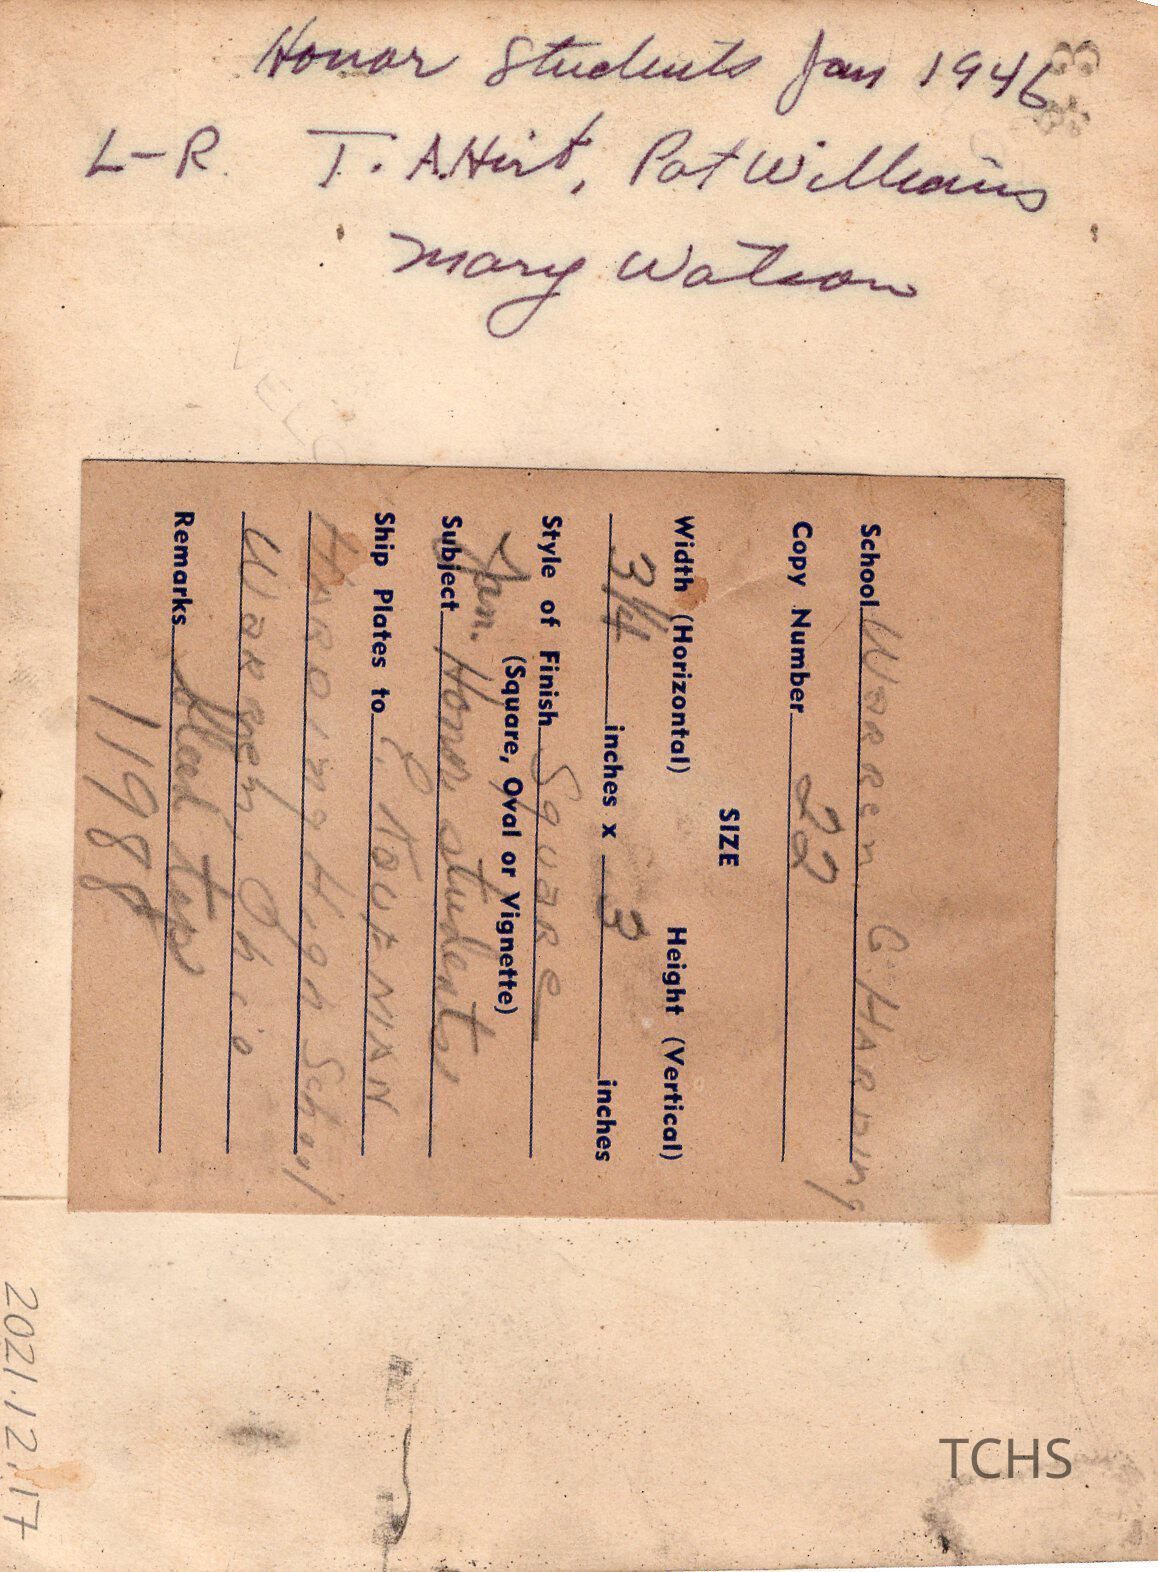 Honor Students Jan 1946
L-R. T. A. Hirt, Pat Williams
Mary Watson
School Warren G. Harding
Copy Number 22
SIZE
Width (Horizontal) Height (Vertical)
3 1/4 inches x 3 inches
Style of Finish Square
(Square, Oval or Vignette)
Jan.
Subject Honor students
Ship Plates to
Harding High School
Warren, Ohio
Remarks
11988
2021.12.17
TCHS